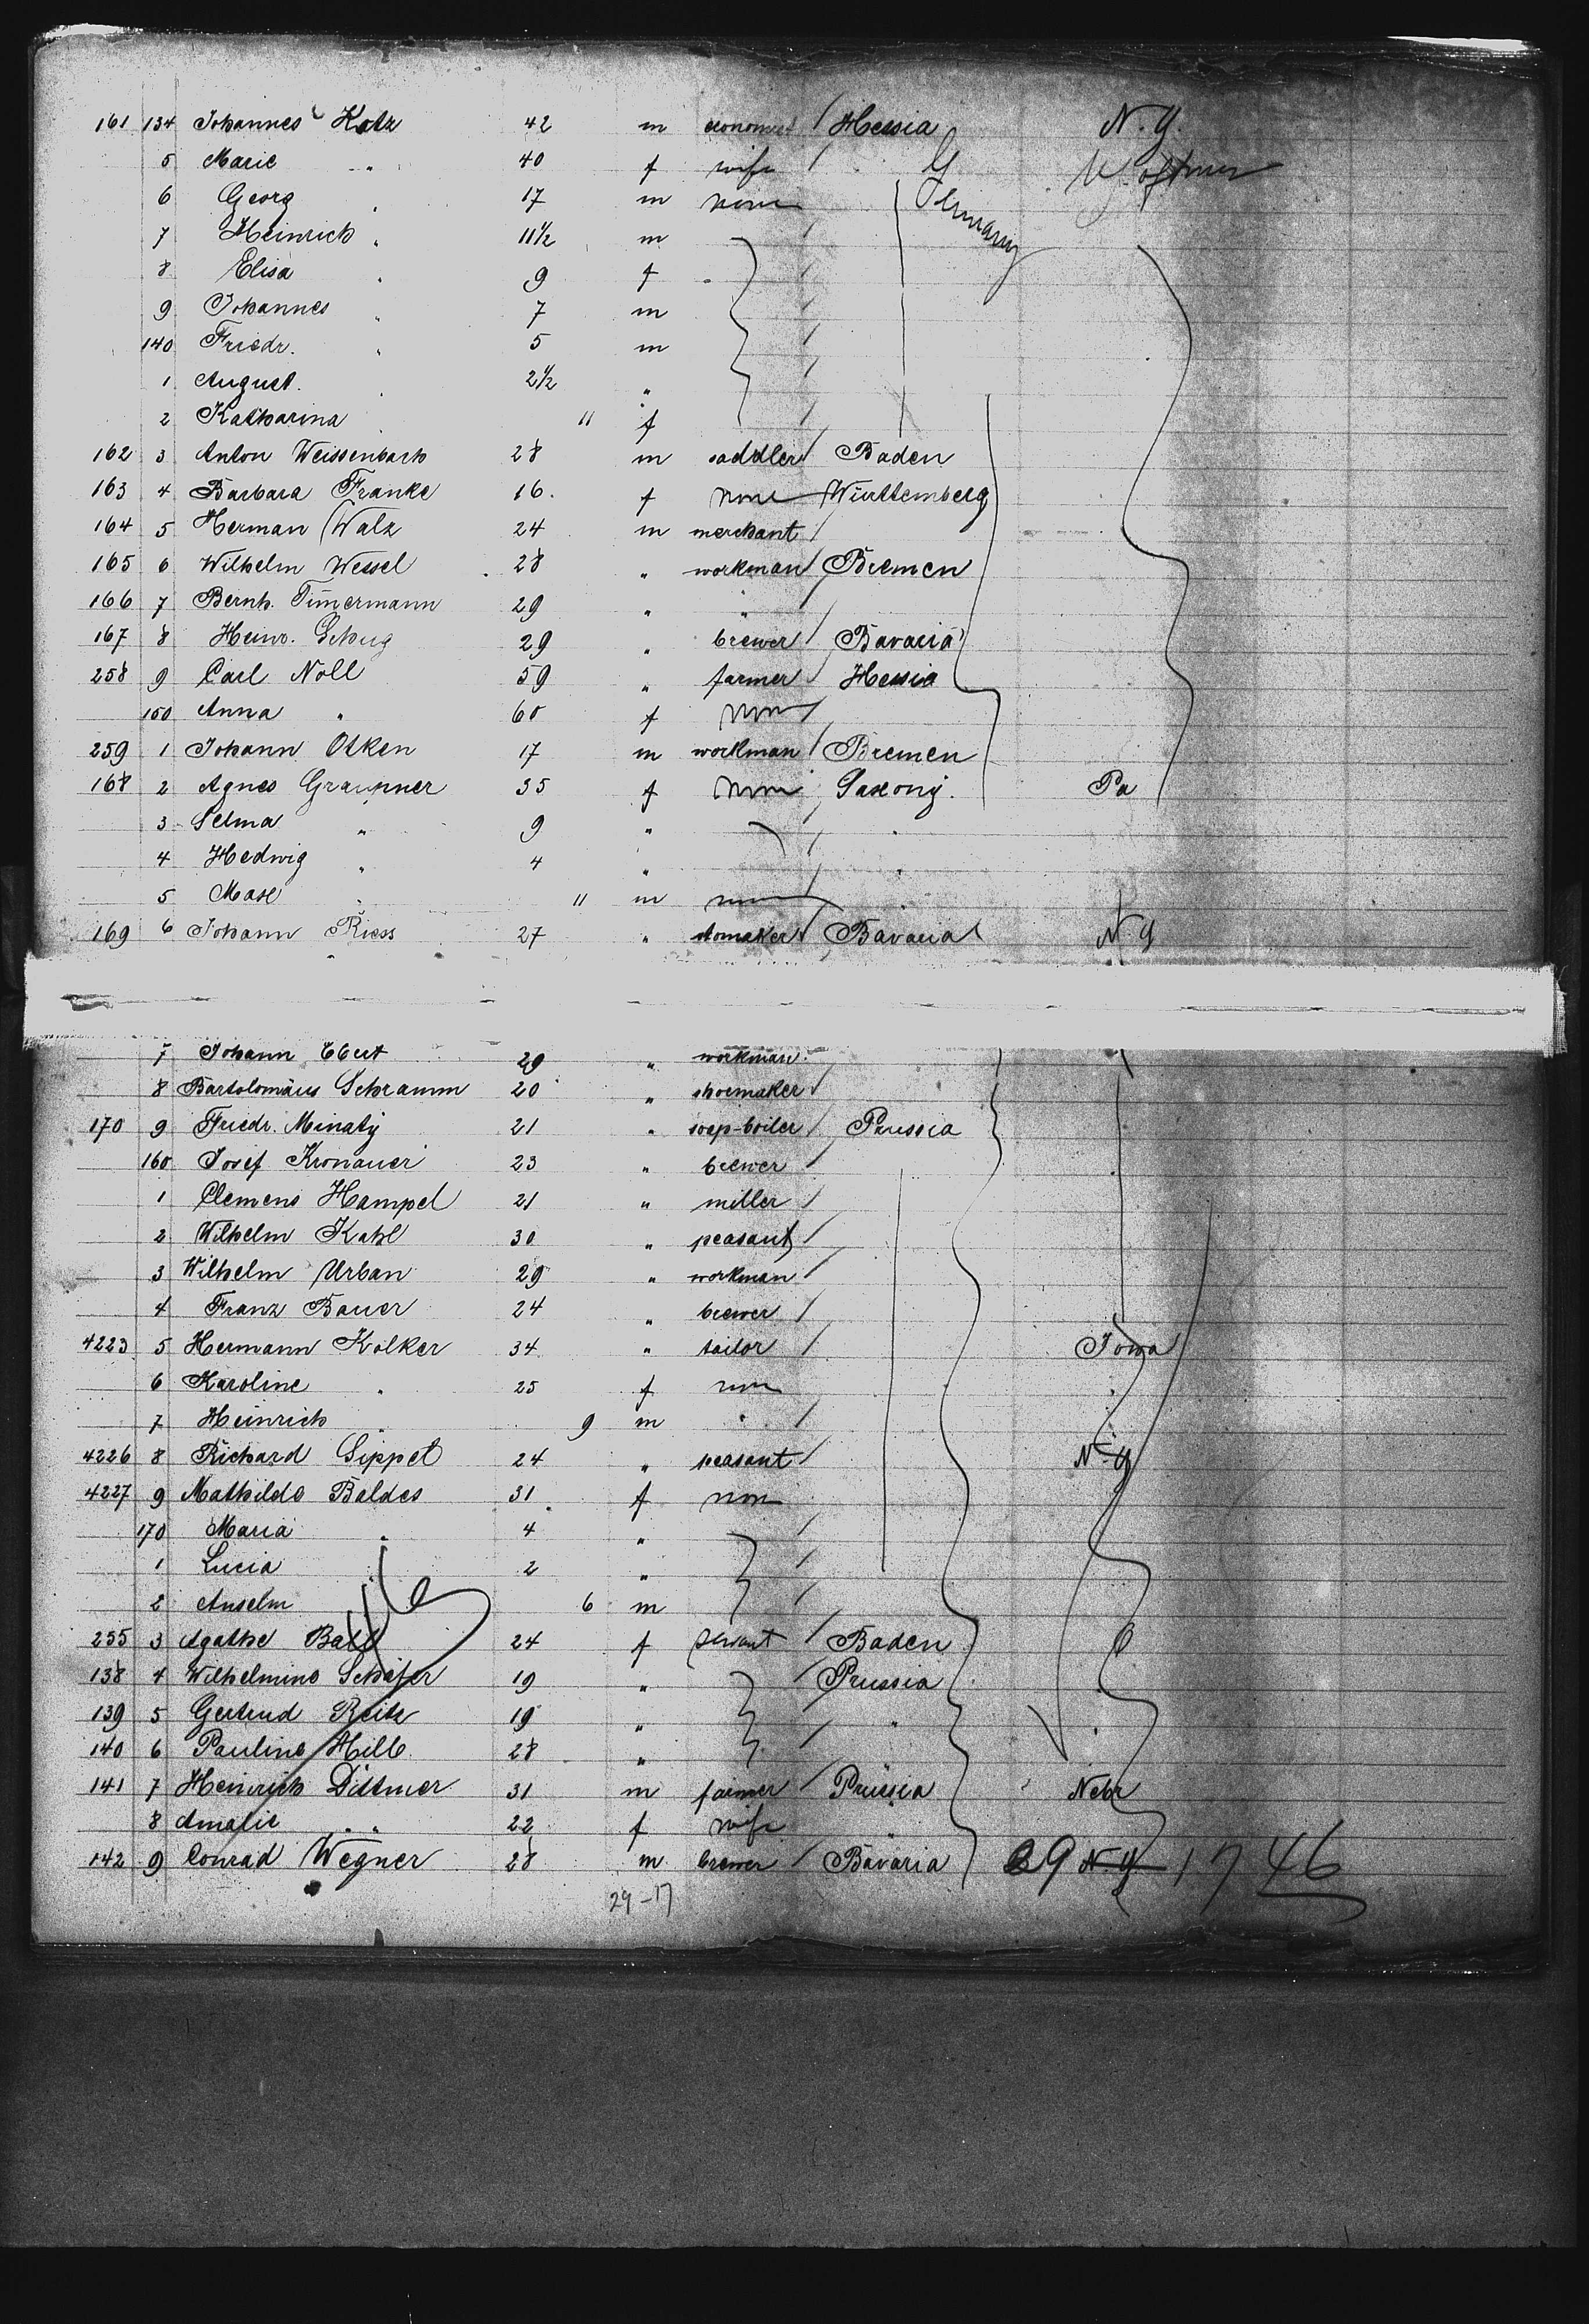 161 134 Johannes Kotz 42 m economist / Hessia N.Y.
5 Marie " 40 f wife /
6 Georg " 17 m none Germany
7 Heinrich " 11 1/2 m /
8 Elisa " 9 f /
9 Johannes " 7 m /
140 Friedr. " 5 m /
1 August " 2 1/2 " /
2 Katharina 11 f /
162 3 Anton Weissenbach 28 m saddler / Baden
163 4 Barbara Franke 16 f none Württemberg
164 5 Herman Walz 24 m merchant /
165 6 Wilhelm Wessel 28 " workman / Bremen
166 7 Bernh. Timermann 29 " " /
167 8 Heinr. Schug 29 " brewer / Bavaria
258 9 Carl Noll 59 " farmer / Hessia
150 Anna " 60 f none /
259 1 Johann Otken 17 m workman / Bremen
168 2 Agnes Graupner 35 f none Saxony. Pa
3 Selma " 9 " /
4 Hedwig " 4 " /
5 Max " 11 m none
169 6 Johann Riess 27 " Bavaria N.Y
7 Johann Ebert 29 " workman
8 Bartolomäus Schramm 20 " shoemaker /
170 9 Friedr. Minaty 21 " soap-boiler / Prussia
160 Josef Kronauer 23 " brewer /
1 Clemens Hampel 21 " miller /
2 Wilhelm Kahl 30 " peasant /
3 Wilhelm Urban 29 " workman /
4 Franz Bauer 24 " brewer /
4223 5 Hermann Kolker 34 " tailor / Iowa
6 Karoline " 25 f none
7 Heinrich " 9 m " /
4226 8 Richard Sippel 24 " peasant / N.Y
4227 9 Mathilde Baldes 31 f none
170 Maria " 4 " /
1 Lucia 2 " /
2 Anselm 6 m /
255 3 Agathe Ball 24 f servant / Baden
138 4 Wilhelmine Schäfer 19 " / Prussia
139 5 Gertrud Reitz 19 " / "
140 6 Pauline Hille 28 "
141 7 Heinrich Dittmer 31 m farmer / Prussia Nebr
8 Amalie " 22 f wife
142 9 Conrad Wegner 28 m brewer / Bavaria 29 N.Y. 17 46
29-17